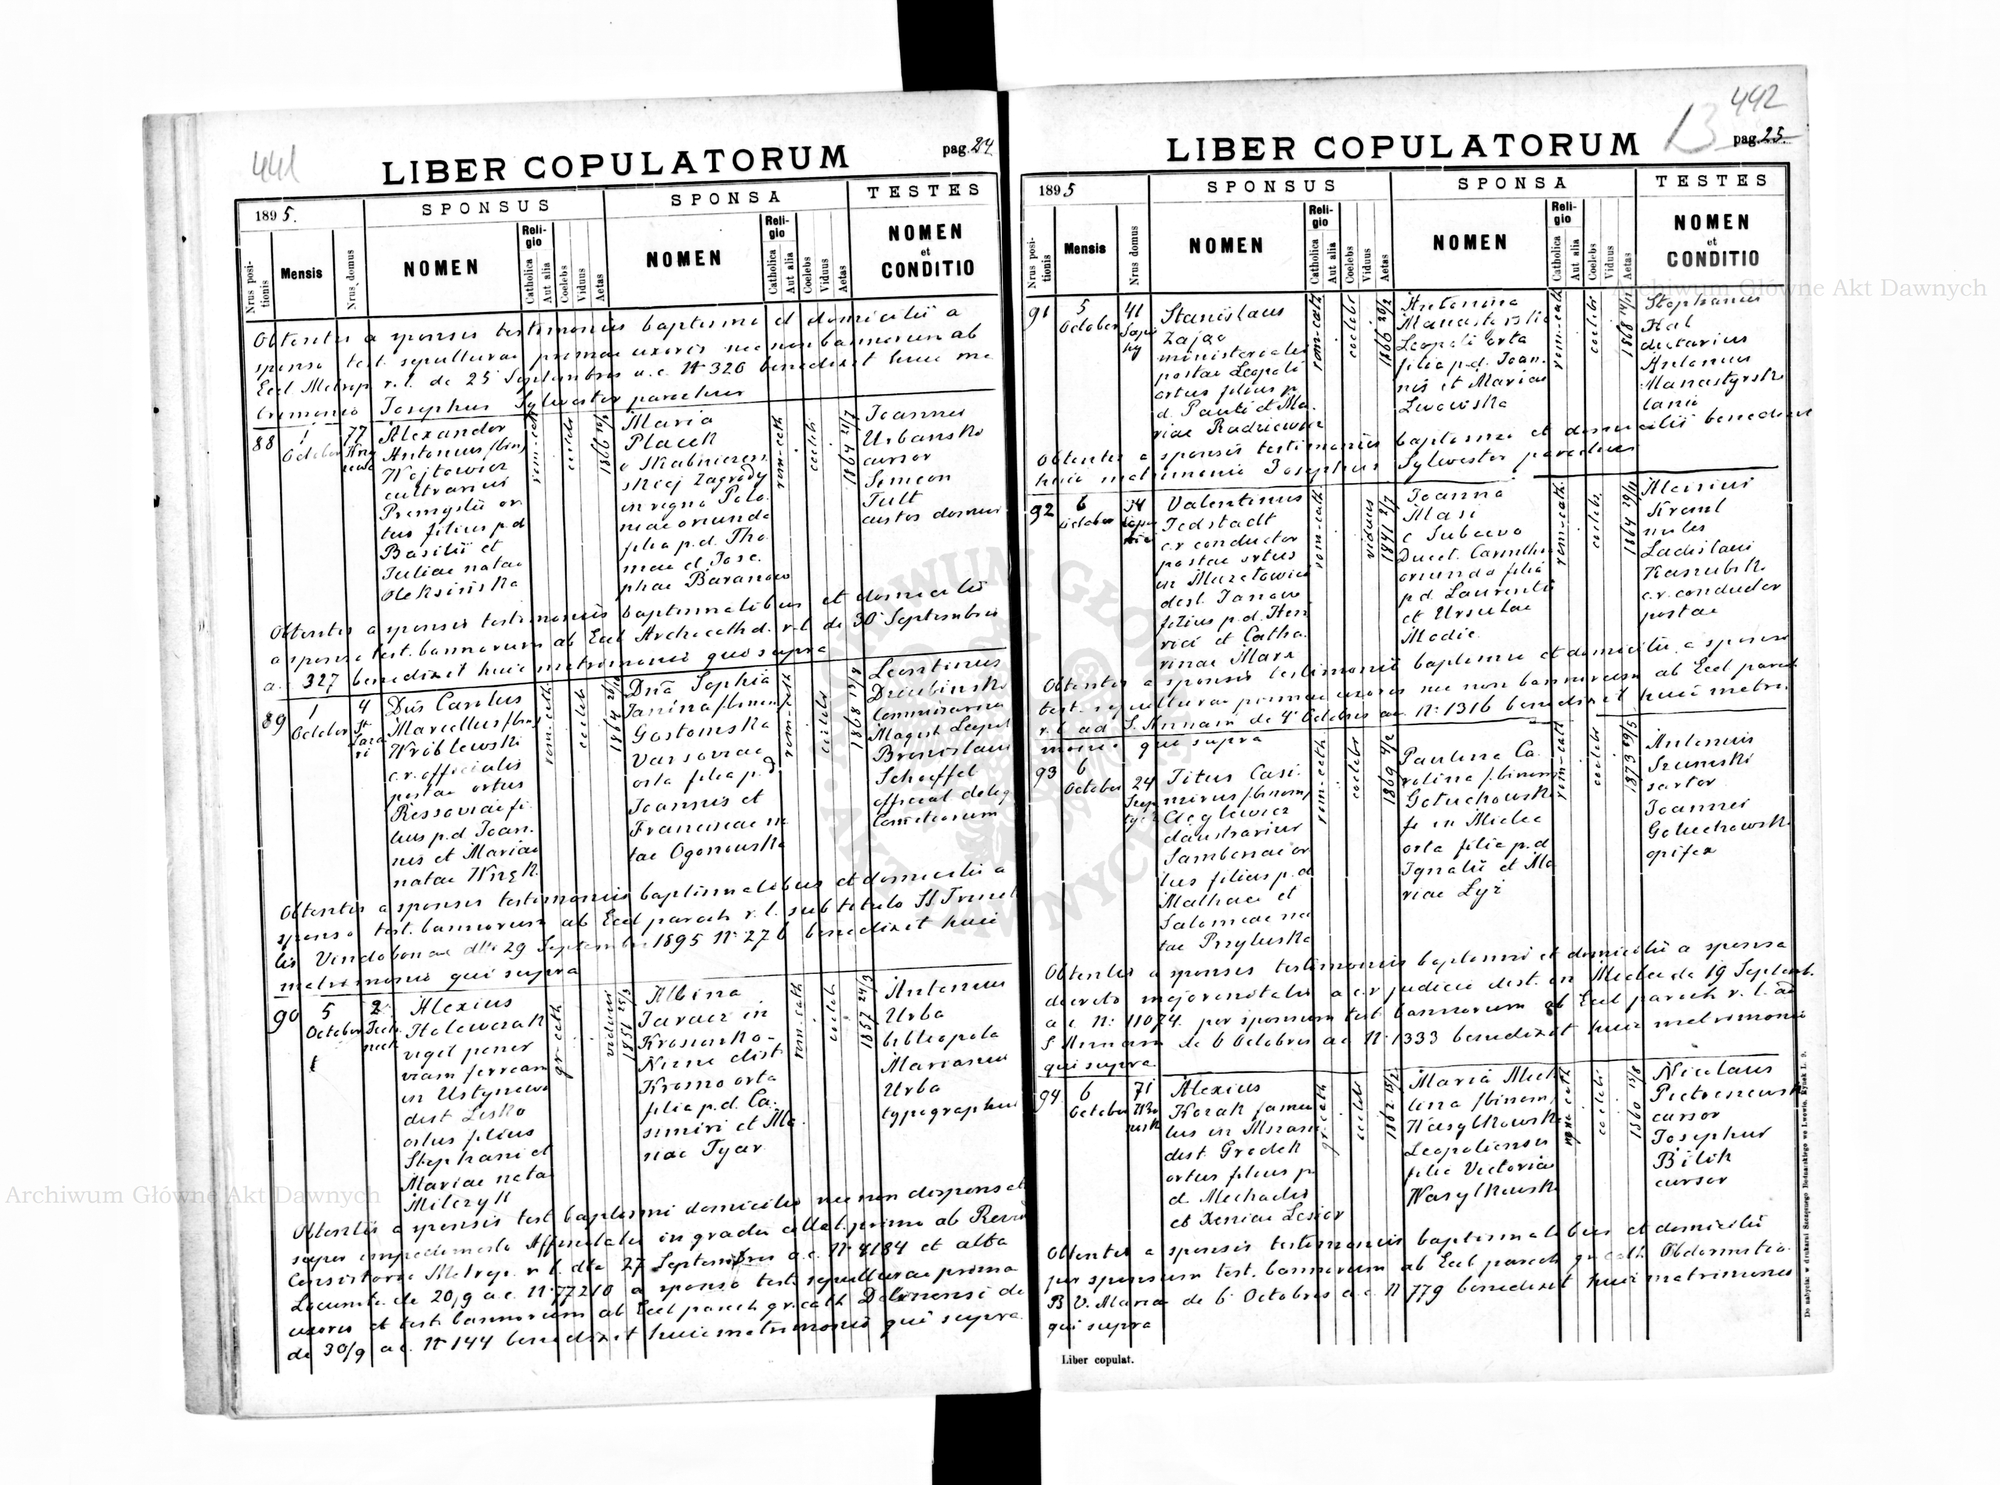 441
LIBER COPULATORUM
pag. 24
1895.
SPONSUS
SPONSA
TESTES
Nrus positionis
Mensis
Nrus domus
NOMEN
Religio
Catholica
Aut alia
Coelebs
Viduus
Aetas
NOMEN
Religio
Catholica
Aut alia
Coelebs
Viduus
Aetas
NOMEN
et
CONDITIO
Obtentis a sponsis testimoniis baptismi et domicilii a
sponso test. sepulturae primae uxoris nec non bannorum ab
Eccl Metrop r. l. de 25 Septembris a. c. N 320 benedixit huic ma
trimonio Josephus Sylwester parochus
88
1
October
77
Alexander
Antonius /binom/
Wojtowicz
cultrarius
Premyslii or
tus filius p. d
Basilii et
Juliae natae
Oleksińska
rom-cath
coelebs
1866
Maria
Placek
e Skabniczen
skiej Zagrody
in regno Polo
niae oriunda
filia p. d. Tho
mae et Jose
phae Baranow
rom-cath
coelebs
1864 21/7
Joannes
Urbański
cursor
Simeon
Tult
custos domus
Obtentis a sponsis testimoniis baptismalibus et domicilii
a sponso test. bannorum ab Eccl Archicathd. r. l. de 30 Septembris
a. c. 327 benedixit huic matrimonio qui supra
89
1
October
4
Dns Carolus
Marcellus /binom/
Wróblewski
c. r. officialis
postae ortus
Ressoviae fi
lius p. d Joan.
nis et Mariae
natae
rom-cath
coelebs
1864
Dna Sophia
Janina /binom/
Gostomska
Varsoviae
orta filia p. d
Joannis et
Franciscae na
tae Ogonowska
rom-cath
coelebs
1868 17/8
Leontinus
Dziubiński
Commissarius
Magist Leopol
Bronislaus
Schaeffel
official deleg
Comitiorum
Obtentis a sponsis testimoniis baptismalibus et domicilii a
sponso test. bannorum ab Eccl paroch r. l. sub titulo SS Trinit
tis Vindobonae dto 29 Septembris 1895 N 276 benedixit huic
matrimonio qui supra
90
5
October
2
Alexius
Holewczak
vigil penes
viam ferream
in Ustynowa
dist Lisko
ortus filius
Stephani et
Mariae natae
Milczyk
gr-cath
viduus
1851 25/3
Albina
Taracz in
Krosienko-
Niżne dist
Krosno orta
filia p. d. Ca
simiri et Ma
riae Tyar
rom-cath
coelebs
1857 24/3
Antonius
Urba
bibliopola
Marianus
Urba
typographus
Obtentis a sponsis test baptismi domicilii nec non dispensat
super impedimento Affinitatis in gradu collat. primo ab Revmo
Consistorio Metrop. r. l. dto 27 Septembris a. c. N 4184 et alta
Locumte. de 20/9 a. c. N 77210 a sponso test. sepulturae primae
uxoris et test. bannorum ab Eccl paroch gr cath Dolinensi de
de 30/9 a c. N 144 benedixit huic matrimonio qui supra
492
13
LIBER COPULATORUM
pag. 25
1895
SPONSUS
SPONSA
TESTES
Nrus positionis
Mensis
Nrus domus
NOMEN
Religio
Catholica
Aut alia
Coelebs
Viduus
Aetas
NOMEN
Religio
Catholica
Aut alia
Coelebs
Viduus
Aetas
NOMEN
et
CONDITIO
91
5
October
41
Stanislaus
Zając
ministerialis
postae Leopoli
ortus filius p
d. Pauli et Ma
riae Radziewicz
rom-cath
coelebs
1866 20/2
Antonina
Manasterska
Leopoli orta
filia p. d. Joan
nis et Mariae
Lwowiska
rom-cath
coelebs
1868 14/11
Stephanus
Hal
dietarius
Antonius
Manastyrski
lanio
Obtentis a sponsis testimoniis baptismi et domicilii benedixit
huic matrimonio Josephus Sylwester parochus
92
6
October
34
Valentinus
Jedstadt
c. r conductor
postae ortus
in Muzelowice
dist. Janow
filius p. d. Hen
rici et Catha
rinae Marx
rom-cath
viduus
1841 2/7
Joanna
Masi
e Subcevo
Ducat. Carinthia
oriunda filia
p d. Laurentii
et Ursulae
Modic
rom-cath
coelebs
1864 29/11
Alexius
Kreml
miles
Ladislaus
Kanubski
c. r. conductor
postae
Obtentis a sponsis testimoniis baptismi et domicilii a sponso
test. sepulturae primae uxoris nec non bannorum ab Eccl paroch
r. l. ad S. Annam de 4 Octobris a. c. N 1316 benedixit huic matri
monio qui supra
93
6
October
24
Titus Casi
mirus /binom/
Cieglewicz
claustrarius
Samboriae or
tus filius p. d
Mathaei et
Salomeae na
tae Przyluska
rom-cath
coelebs
1869 4/2
Paulina Ca
rolina /binom/
Goluchowska
in Mielec
orta filia p. d
Ignatii et Ma
riae Lyż
rom-cath
coelebs
1873 29/5
Antonius
Szumski
sartor
Joannes
Goluchowski
opifex
Obtentis a sponsis testimoniis baptismi et domicilii a sponsa
decreto majorennitatis a c. r judicio dist. in Mielec de 19 Septemb.
a. c. N 11074. per sponsum test bannorum ab Eccl paroch r. l. ad
S Annam de 6 Octobris a c. N 1333 benedixit huic matrimonio
qui supra
94
6
October
71
Alexius
Korak famu
lus in Mszana
dist. Gródek
ortus filius p
d. Michaelis
et Xeniae Lesior
gr-cath
coelebs
1862 15/2
Maria Mich
lina /binom/
Wasylkowska
Leopoliensis
filia Victoriae
Wasylkowska
coelebs
1860 15/8
Nicolaus
Pietroniewski
cursor
Josephus
Bilik
cursor
Obtentis a sponsis testimoniis baptismalibus et domicilii
per sponsum test. bannorum ab Eccl paroch gr cath Obdormitio
B V. Mariae de 6 Octobris a c. N 779 benedixit huic matrimonio
qui supra
Liber copulat.
Archiwum Główne Akt Dawnych
Archiwum Główne Akt Dawnych
ARCHIWUM GŁÓWNE AKT DAWNYCH